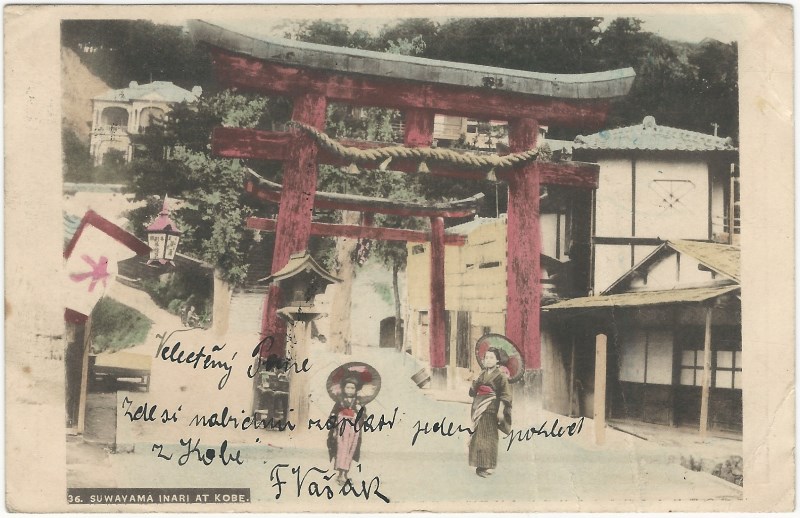 Velectěný Pane
Zde si nabídnu zaplast jeden pohled
z Kobe.
F Vašák
36. SUWAYAMA INARI AT KOBE.